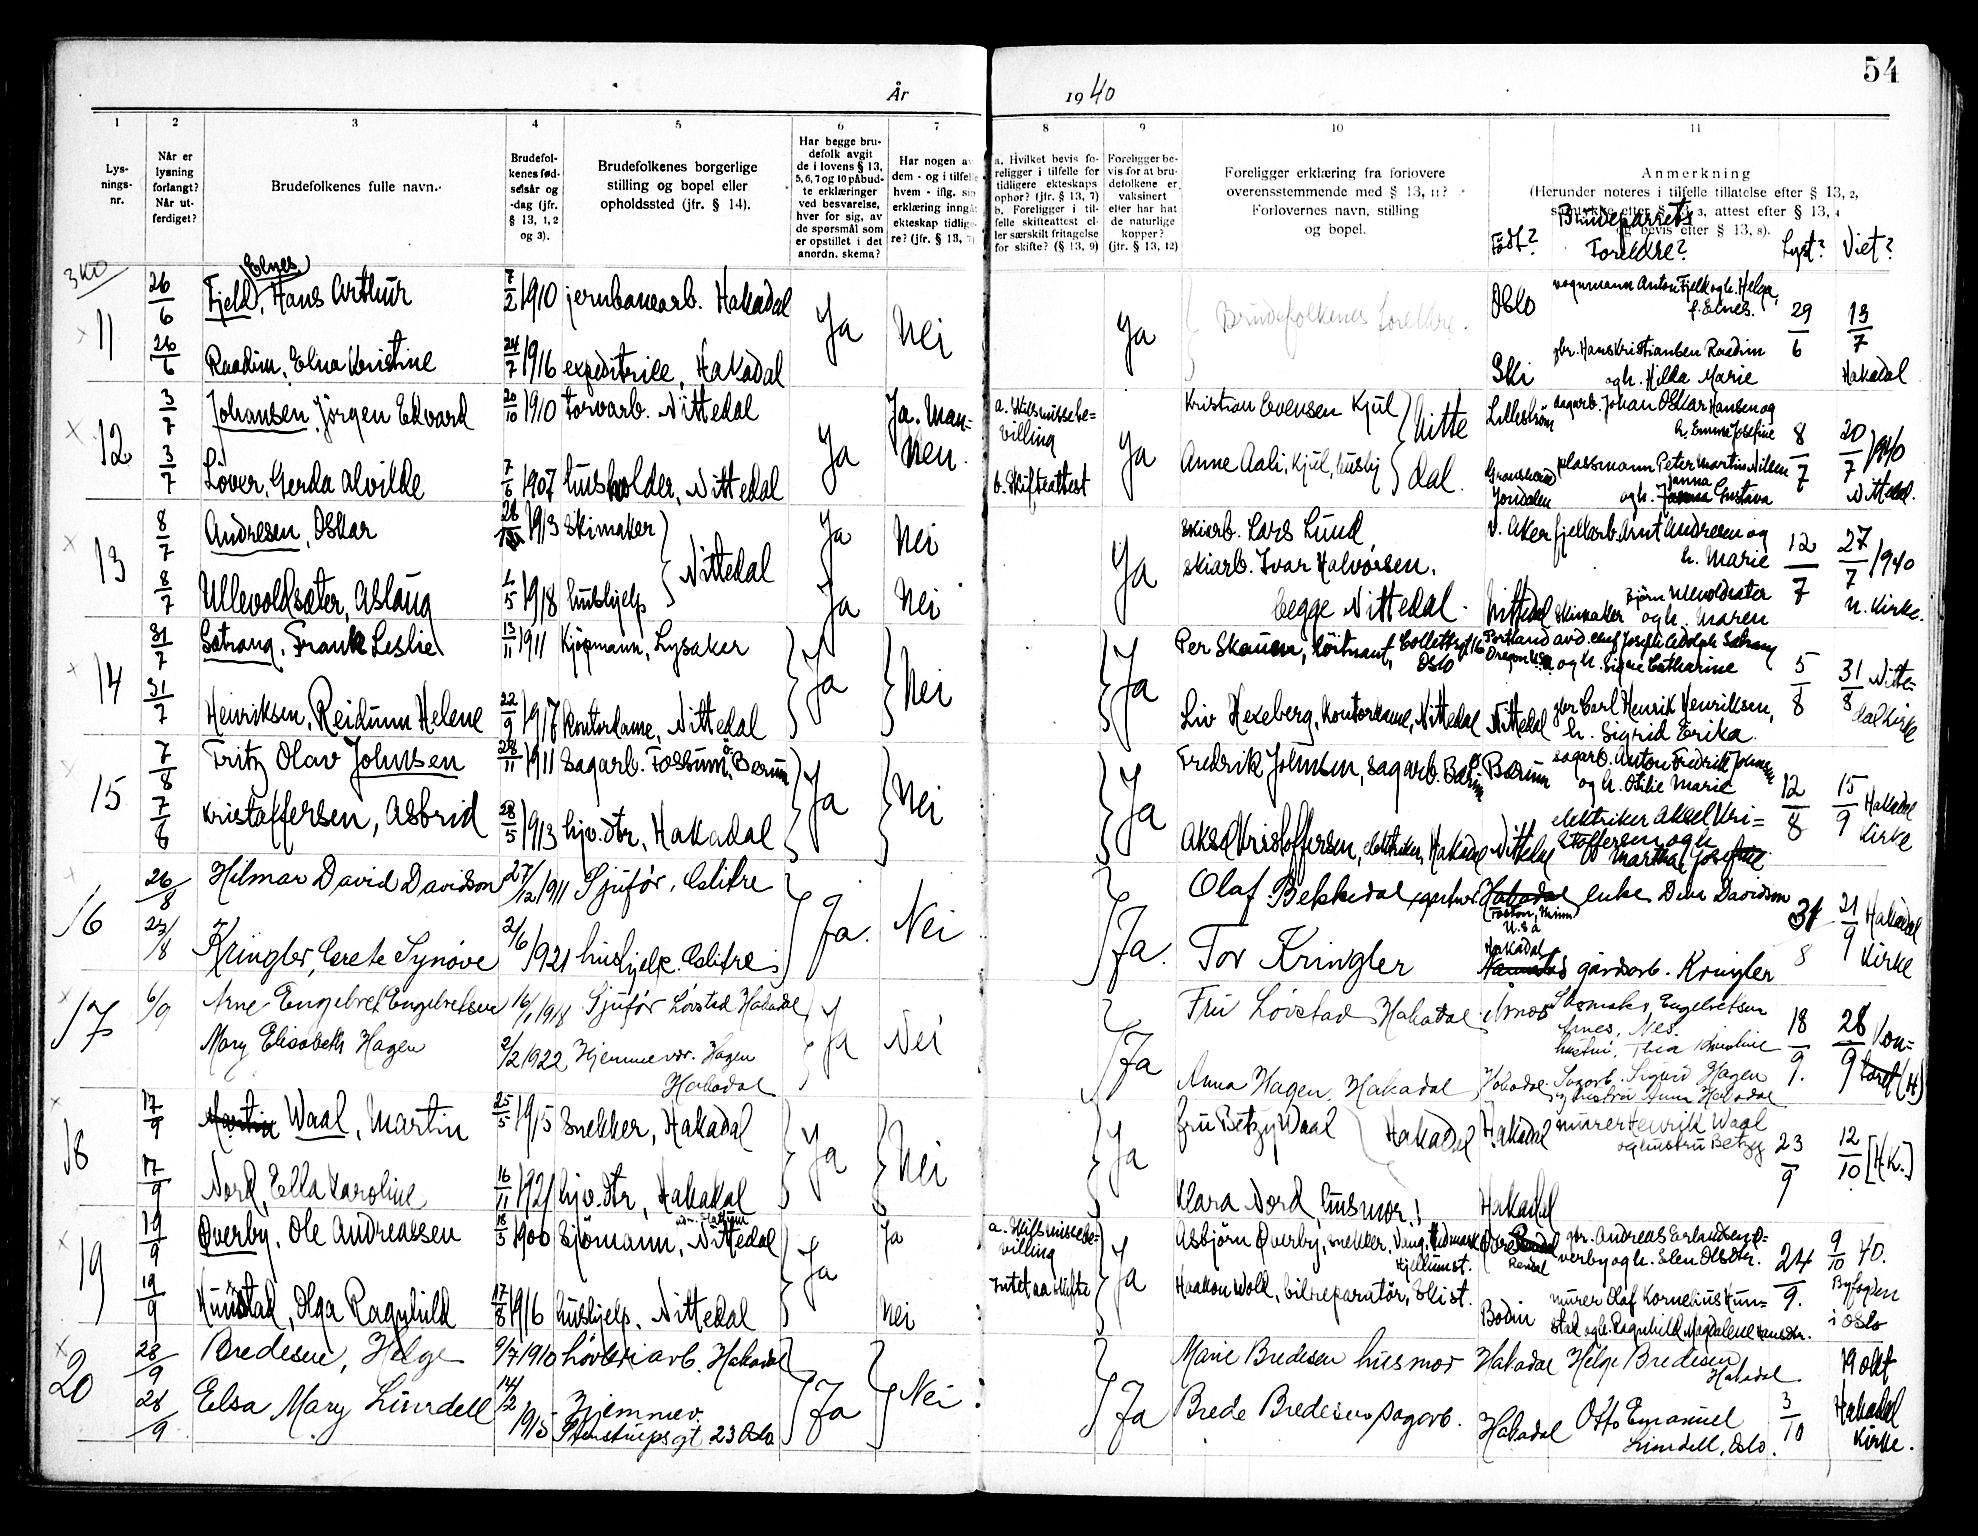 54
År
1940
1 2 3 4 5 6 7 8 9 10 11
Lys-
nings-
nr.
Når er
lysning
forlangt?
Når ut-
ferdiget?
Brudefolkenes fulle navn.
Brudefol-
kenes fød-
selsår og
-dag (jfr.
§ 13, 1, 2
og 3).
Brudefolkenes borgerlige
stilling og bopel eller
opholdssted (jfr. § 14).
Har begge bru-
defolk avgit
de i lovens § 13,
5, 6, 7 og 10 påbud-
te erklæringer
ved besvarelse,
hver for sig, av
de spørsmål som
er opstillet i det
anordn. skema?
Har nogen av
dem - og i tilfelle
hvem - iflg. sin
erklæring inngåt
ekteskap tidlige-
re? (jfr. § 13, 7)
a. Hvilket bevis fo-
religger i tilfelle for
tidligere ekteskaps
ophør? (jfr. § 13, 7)
b. Foreligger i til-
felle skifteattest el-
ler særskilt fritagelse
for skifte? (§ 13, 9)
Foreligger be-
vis for at bru-
defolkene er
vaksinert
eller har hat
de naturlige
kopper?
(jfr. § 13, 12)
Foreligger erklæring fra forlovere
overensstemmende med § 13, 11?
Forlovernes navn, stilling
og bopel.
Anmerkning
(Herunder noteres i tilfelle tillatelse efter § 13, 2,
samtykke efter § 13, 3, attest efter § 13, 4
og bevis efter § 13, 8).
Født?
Brudeparrets
Foreldre?
Lyst?
Viet?
3 KO
11
26/6
Elnes
Fjell, Hans Arthur
7/2 1910
jernbanearb. Hakadal
Ja
Nei
Ja
Brudefolkenes foreldre.
Oslo
vognmann Anton Fjell og h. Helga,
f. Elnes.
29/6
13/7
Hakadal
26/6
Raadim, Elna Kristine
24/7 1916
expeditrise, Hakadal
Ski
gbr. Hans Kristiansen Raadim
og h. Hilda Marie
12
3/7
Johansen, Jørgen Edvard
20/10 1910
torvarb. Nittedal
Ja
Ja. Man-
nen.
a. Skilsmissebe-
villing
b. Skifteattest
Ja
Kristian Evensen Kjul
Nitte
dal.
Lillestrøm
sagarb. Johan Oskar Hansen og
h. Emma Josefine
8/7
20/7 1940
Nittedal.
3/7
Løver, Gerda Alvilde
7/6 1907
husholder, Nittedal
Anne Aali, Kjul, husbj
plassmann Peter Martin Nilsen
Janna
og h. Gustava
13
8/7
Andresen, Oskar
1913
skimaker
Nittedal
Ja
Nei
Ja
skiarb. Lars Lund,
skiarb. Ivar Halvorsen.
begge Nittedal.
V. Aker
fjellarb. Arnt Andresen og
h. Marie
12/7
27/7 1940
N. Kirke.
8/7
Ullevoldsæter, Aslaug
1/5 1918
hushjelp
Ja
Nei
Nittedal
skimaker Bjørn Ullevoldsæter
og h. Maren
14
31/7
Satrang, Frank Leslie
13/11 1911
Kjøpmann, Lysaker
Ja
Nei
Ja
Per Skauen, løitnant, Collettsgt 16
Oslo
Portland
Oregon USA
avd. chef Joseph Adolph Satrang
og h. Signe Catharine
5/8
31/8
Nitte-
dal Kirke
31/7
Henriksen, Reidunn Helene
22/9 1917
kontordame, Nittedal
Liv Hexeberg, kontordame, Nittedal
Nittedal
gbr Carl Henrik Henriksen,
h. Sigrid Erika.
15
7/8
Fritz Olav Johnsen
28/11 1911
sagarb. Fossum, Ø. Bærum
Ja
Nei
Ja
Fredrik Johnsen, sagarb. Bærum
Bærum
sagarb. Anton Fredrik Johnsen
og h. Otilie Marie
12/8
15/9
Hakadal
Kirke
7/8
Kristoffersen, Asbrid
28/5 1913
hjv. dtr, Hakadal
Aksel Kristoffersen, elektriker, Hakadal
Nittedal
elektriker Aksel Kri-
stoffersen og h.
Martha Josefine
16
26/8
Hilmar David Davidson
27/12 1911
Sjufør,
Ja.
Nei
Ja.
Olaf Bekkedal,
Hakadal
U.S.A
enke Dina Davidson
31/8
21/9
Hakadal
Kirke
27/8
Kringler, Grete Synøve
2/6 1921
hushjelp.
Tor Kringler
Hakadal
gårdsarb. Kringler
17
6/9
Arne Engebret Engebretsen
16/1 1918
Sjufør Løvstad Hakadal
Ja
Nei
Ja
Fru Løvstad Hakadal
Årnes
Engebretsen
Årnes, Nes.
hustru, Thea
18/9.
28/9
Kon-
toret (H)
Mary Elisabeth Hagen
2/2 1922
Hjemmevær. Hagen
Hakadal
Anna Hagen, Hakadal
Hakadal
Sagarb. Sigurd Hagen
og hustru Anna Hakadal
18
17/9
Martin Waal, Martin
25/5 1915
Snekker, Hakadal
Ja
Nei
Ja
Fru Betzy Waal
Hakadal
Hakadal
murer Henrik Waal
og hustru Betzy
23/9
12/10
[H.K.]
17/9
Nord, Ella Karoline
16/11 1921
hjv. dtr, Hakadal
Klara Nord, husmor.
Hakadal
19
19/9
Øverby, Ole Andreassen
18/3 1900
Sjømann, Nittedal
Ja
Ja
a. Skilsmissebe-
villing
Intet aa skifte
Ja
Asbjørn Øverby, snekker, Vang, Hedmark
Hjellumst.
Øvre
Rendal
gbr. Andreas Erlandsen Ø-
verby og h. Elen Olsdtr.
24/9.
9/10 40.
Byfogden
i Oslo
19/9
Kunstad, Olga Ragnhild
17/8 1916
hushjelp. Nittedal
Nei
Haakon Wold, bilreparatør,
Bodin
murer Olaf Kornelius Kun-
stad og h. Ragnhild Magdalene
20
28/9
Bredesen, Helge
9/7 1910
høvleriarb. Hakadal
Ja
Nei.
Ja
Marie Bredesen husmor
Hakadal
Helge Bredesen
Hakadal.
3/10
19 okt
Hakadal
Kirke.
28/9
Elsa Mary Lundell
14/2 1915
Hjemmev.
Stenstrupsgt 23 Oslo
Brede Bredesen sagarb.
Hakadal
Otto Emanuel
Lundell, Oslo.